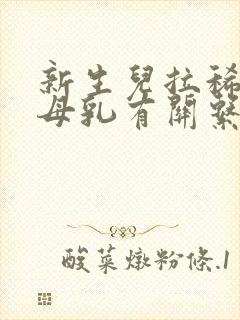 新生兒拉稀
母乳有關繫
酸菜燉粉條.1